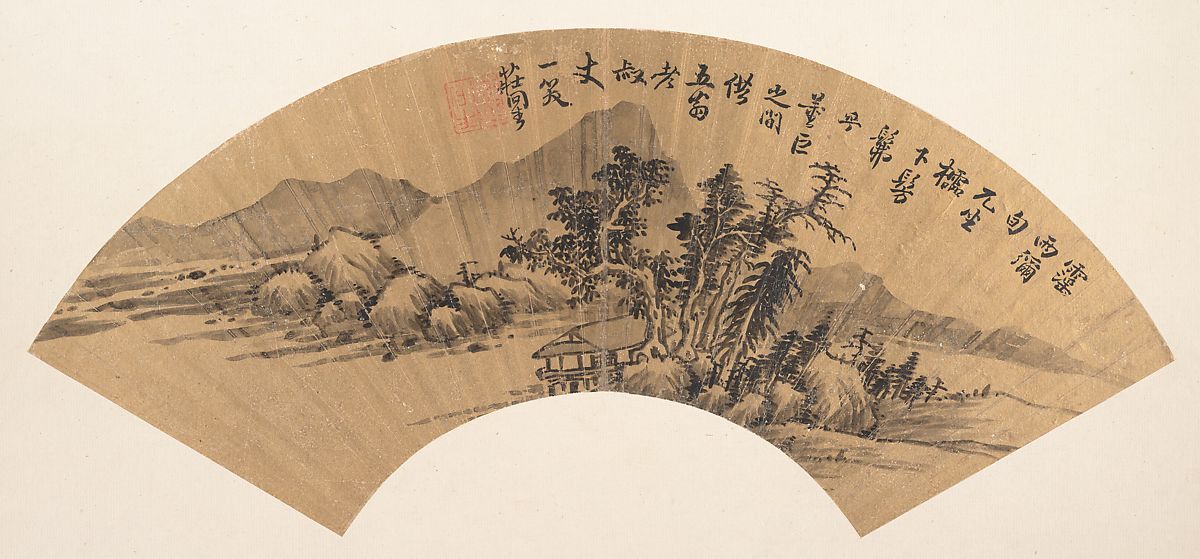 霪
雨彌
旬
兀坐
櫺
下髣
髴
乎
董巨
之間
供
五
老
叔
丈
一笑
莊冏生